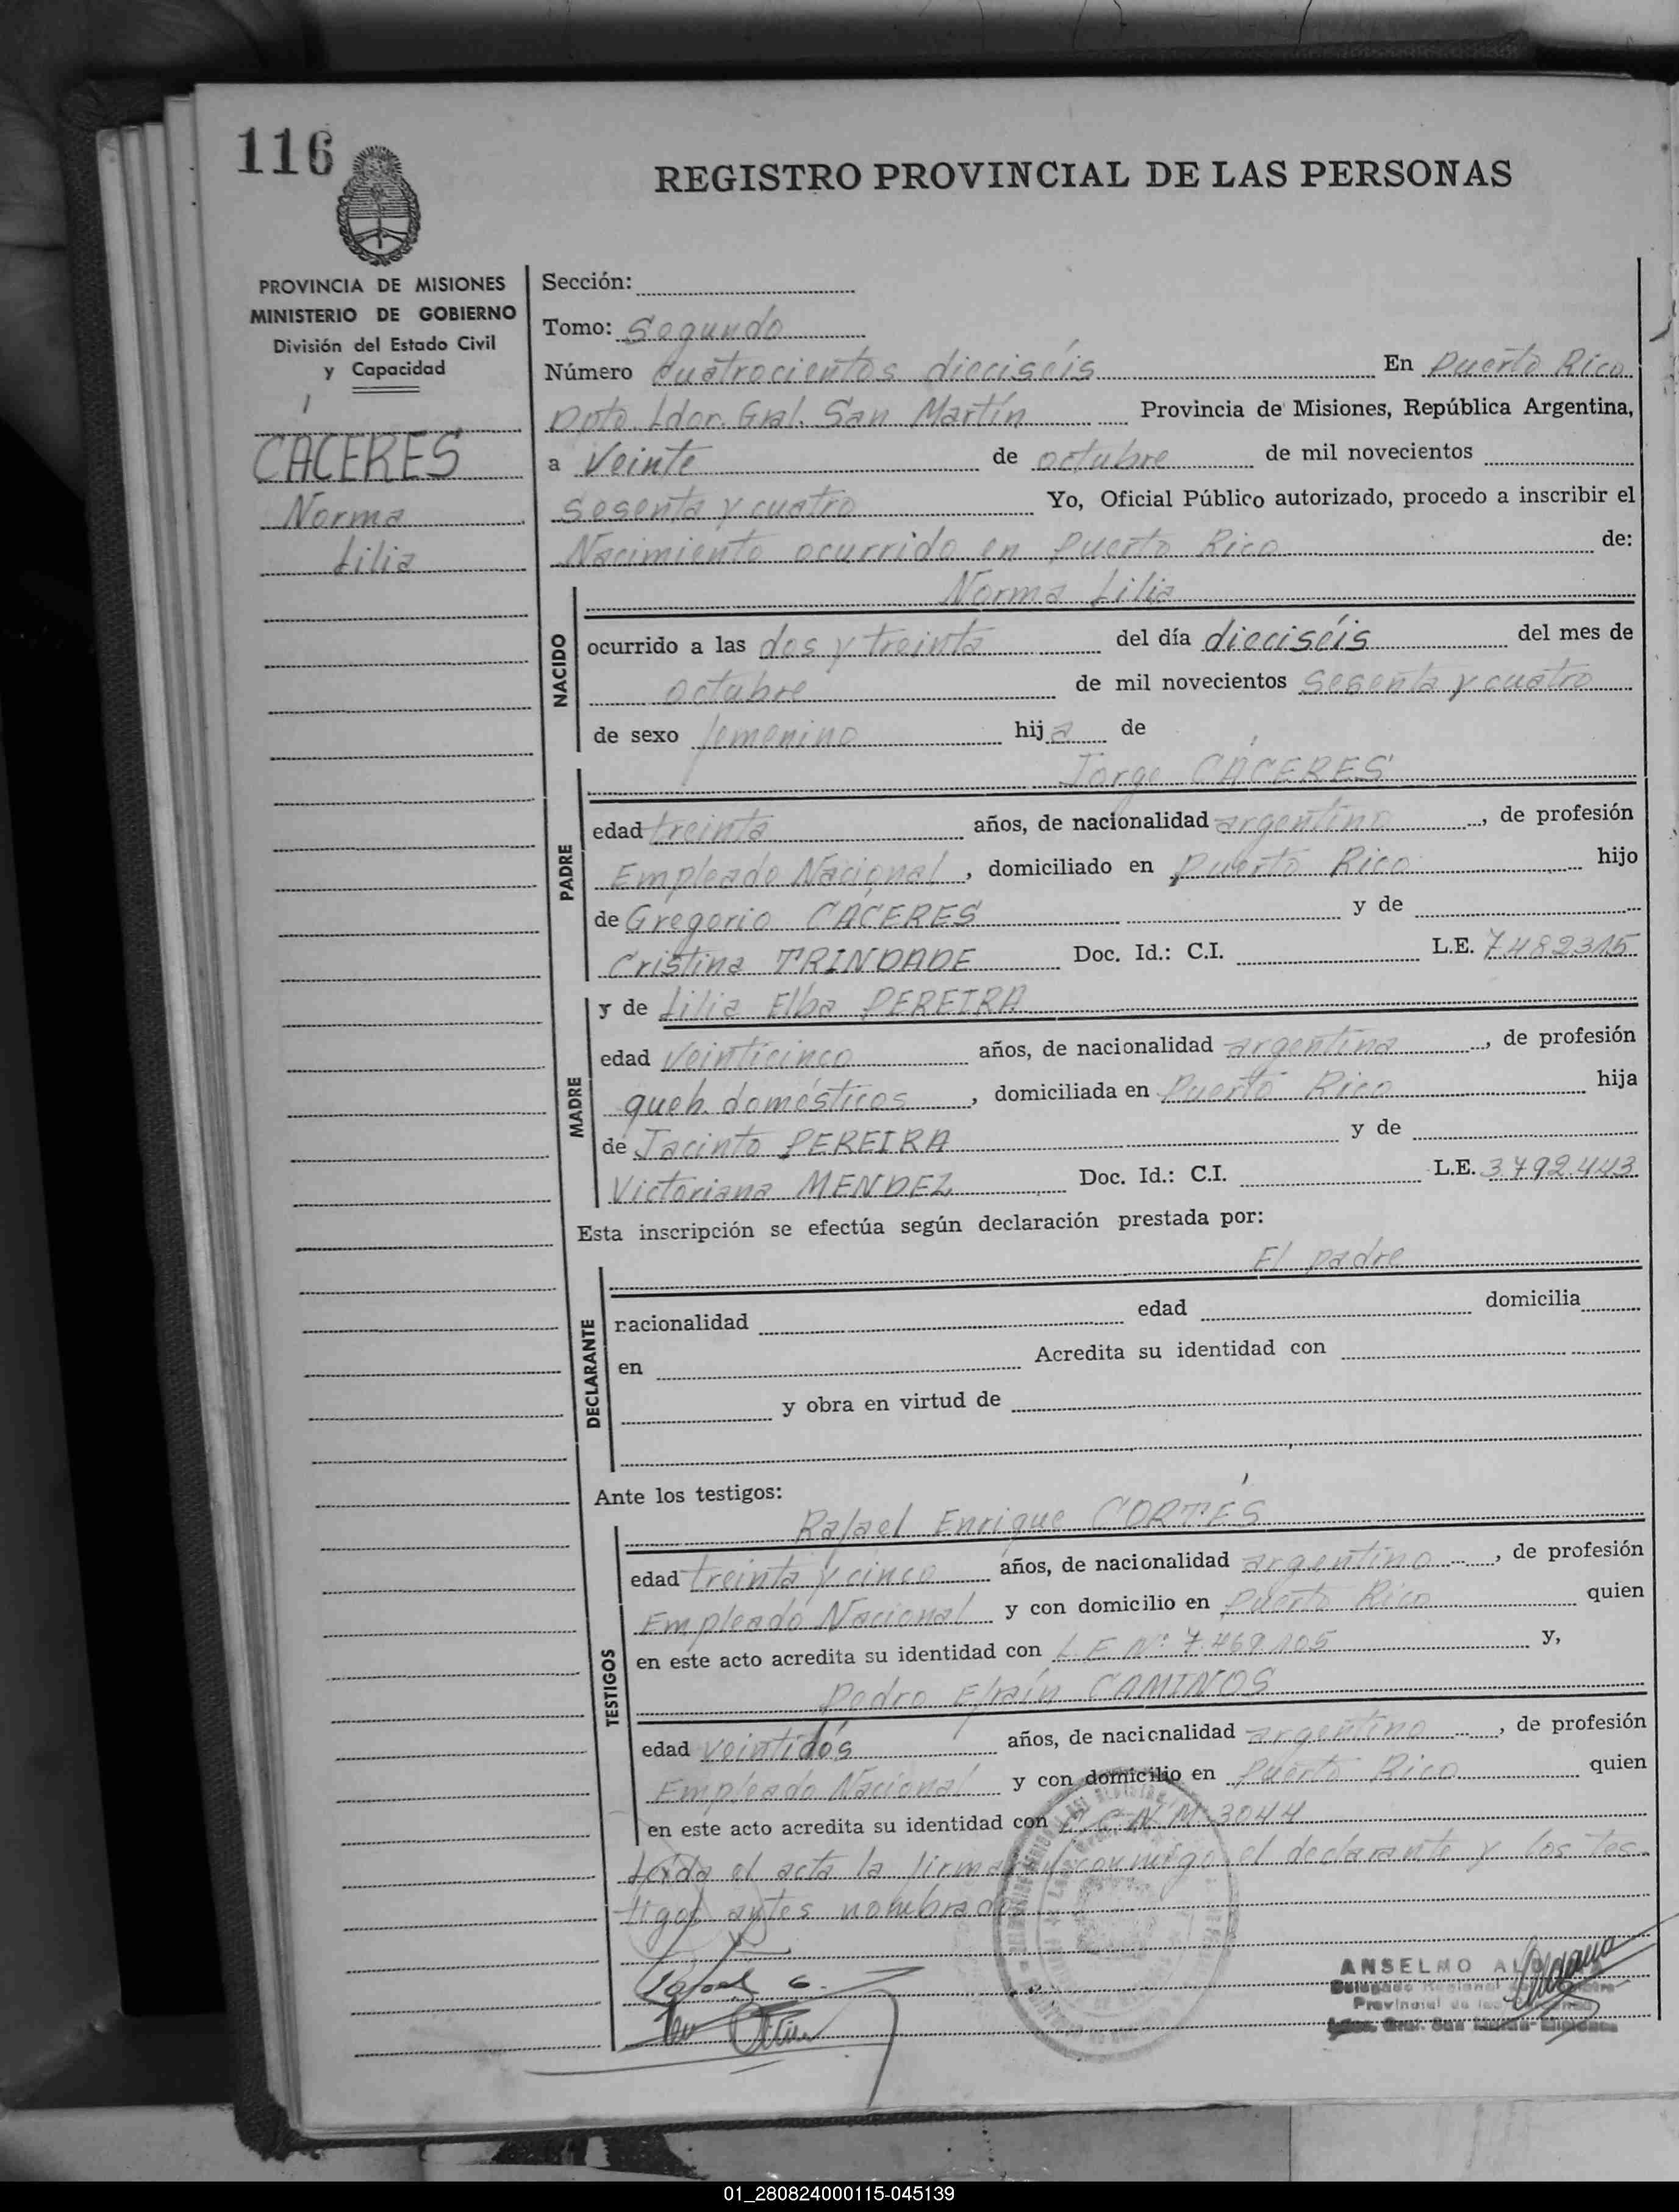 116
REGISTRO PROVINCIAL DE LAS PERSONAS
PROVINCIA DE MISIONES
MINISTERIO DE GOBIERNO
División del Estado Civil
y Capacidad
CÁCERES
Norma
Lilia
Sección:
Tomo: Segundo
Número Cuatrocientos dieciséis En Puerto Rico
Dpto. Ldor. Gral. San Martín Provincia de Misiones, República Argentina,
a Veinte de octubre de mil novecientos
Sesenta y cuatro Yo, Oficial Público autorizado, procedo a inscribir el
Nacimiento ocurrido en Puerto Rico de:
Norma Lilia
NACIDO
ocurrido a las dos y treinta del día dieciséis del mes de
octubre de mil novecientos Sesenta y cuatro
de sexo femenino hija de
Jorge CÁCERES
PADRE
edad treinta años, de nacionalidad argentino, de profesión
Empleado Nacional, domiciliado en Puerto Rico hijo
de Gregorio CÁCERES y de
Cristina TRINDADE Doc. Id.: C.I. L.E. 7.482315
y de Lilia Elba PEREIRA
MADRE
edad Veinticinco años, de nacionalidad argentina, de profesión
queh. domésticos, domiciliada en Puerto Rico hija
de Jacinto PEREIRA y de
Victoriana MENDEZ Doc. Id.: C.I. L.E. 3.792.443
Esta inscripción se efectúa según declaración prestada por:
El padre
DECLARANTE
nacionalidad edad domicilia
en Acredita su identidad con
y obra en virtud de
Ante los testigos:
Rafael Enrique CORTÉS
TESTIGOS
edad treinta y cinco años, de nacionalidad argentino, de profesión
Empleado Nacional y con domicilio en Puerto Rico quien
en este acto acredita su identidad con L.E. Nº 7.469.105 y,
Pedro Efraín CAMINOS
edad veintidós años, de nacionalidad argentino, de profesión
Empleado Nacional y con domicilio en Puerto Rico quien
en este acto acredita su identidad con C. N. M. 3044
Leída el acta la firman conmigo el declarante y los tes-
tigos antes nombrados
ANSELMO
Delegado Regional
Provincial de las
Gral. San Martín - Misiones
01_280824000115-045139